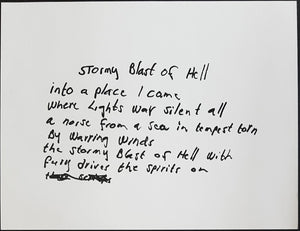 Stormy Blast of Hell
into a place I came
where Lights war silent all
a noise from a sea in tempest torn
By Warring Winds
the stormy Blast of Hell with
fury drives the spirits on